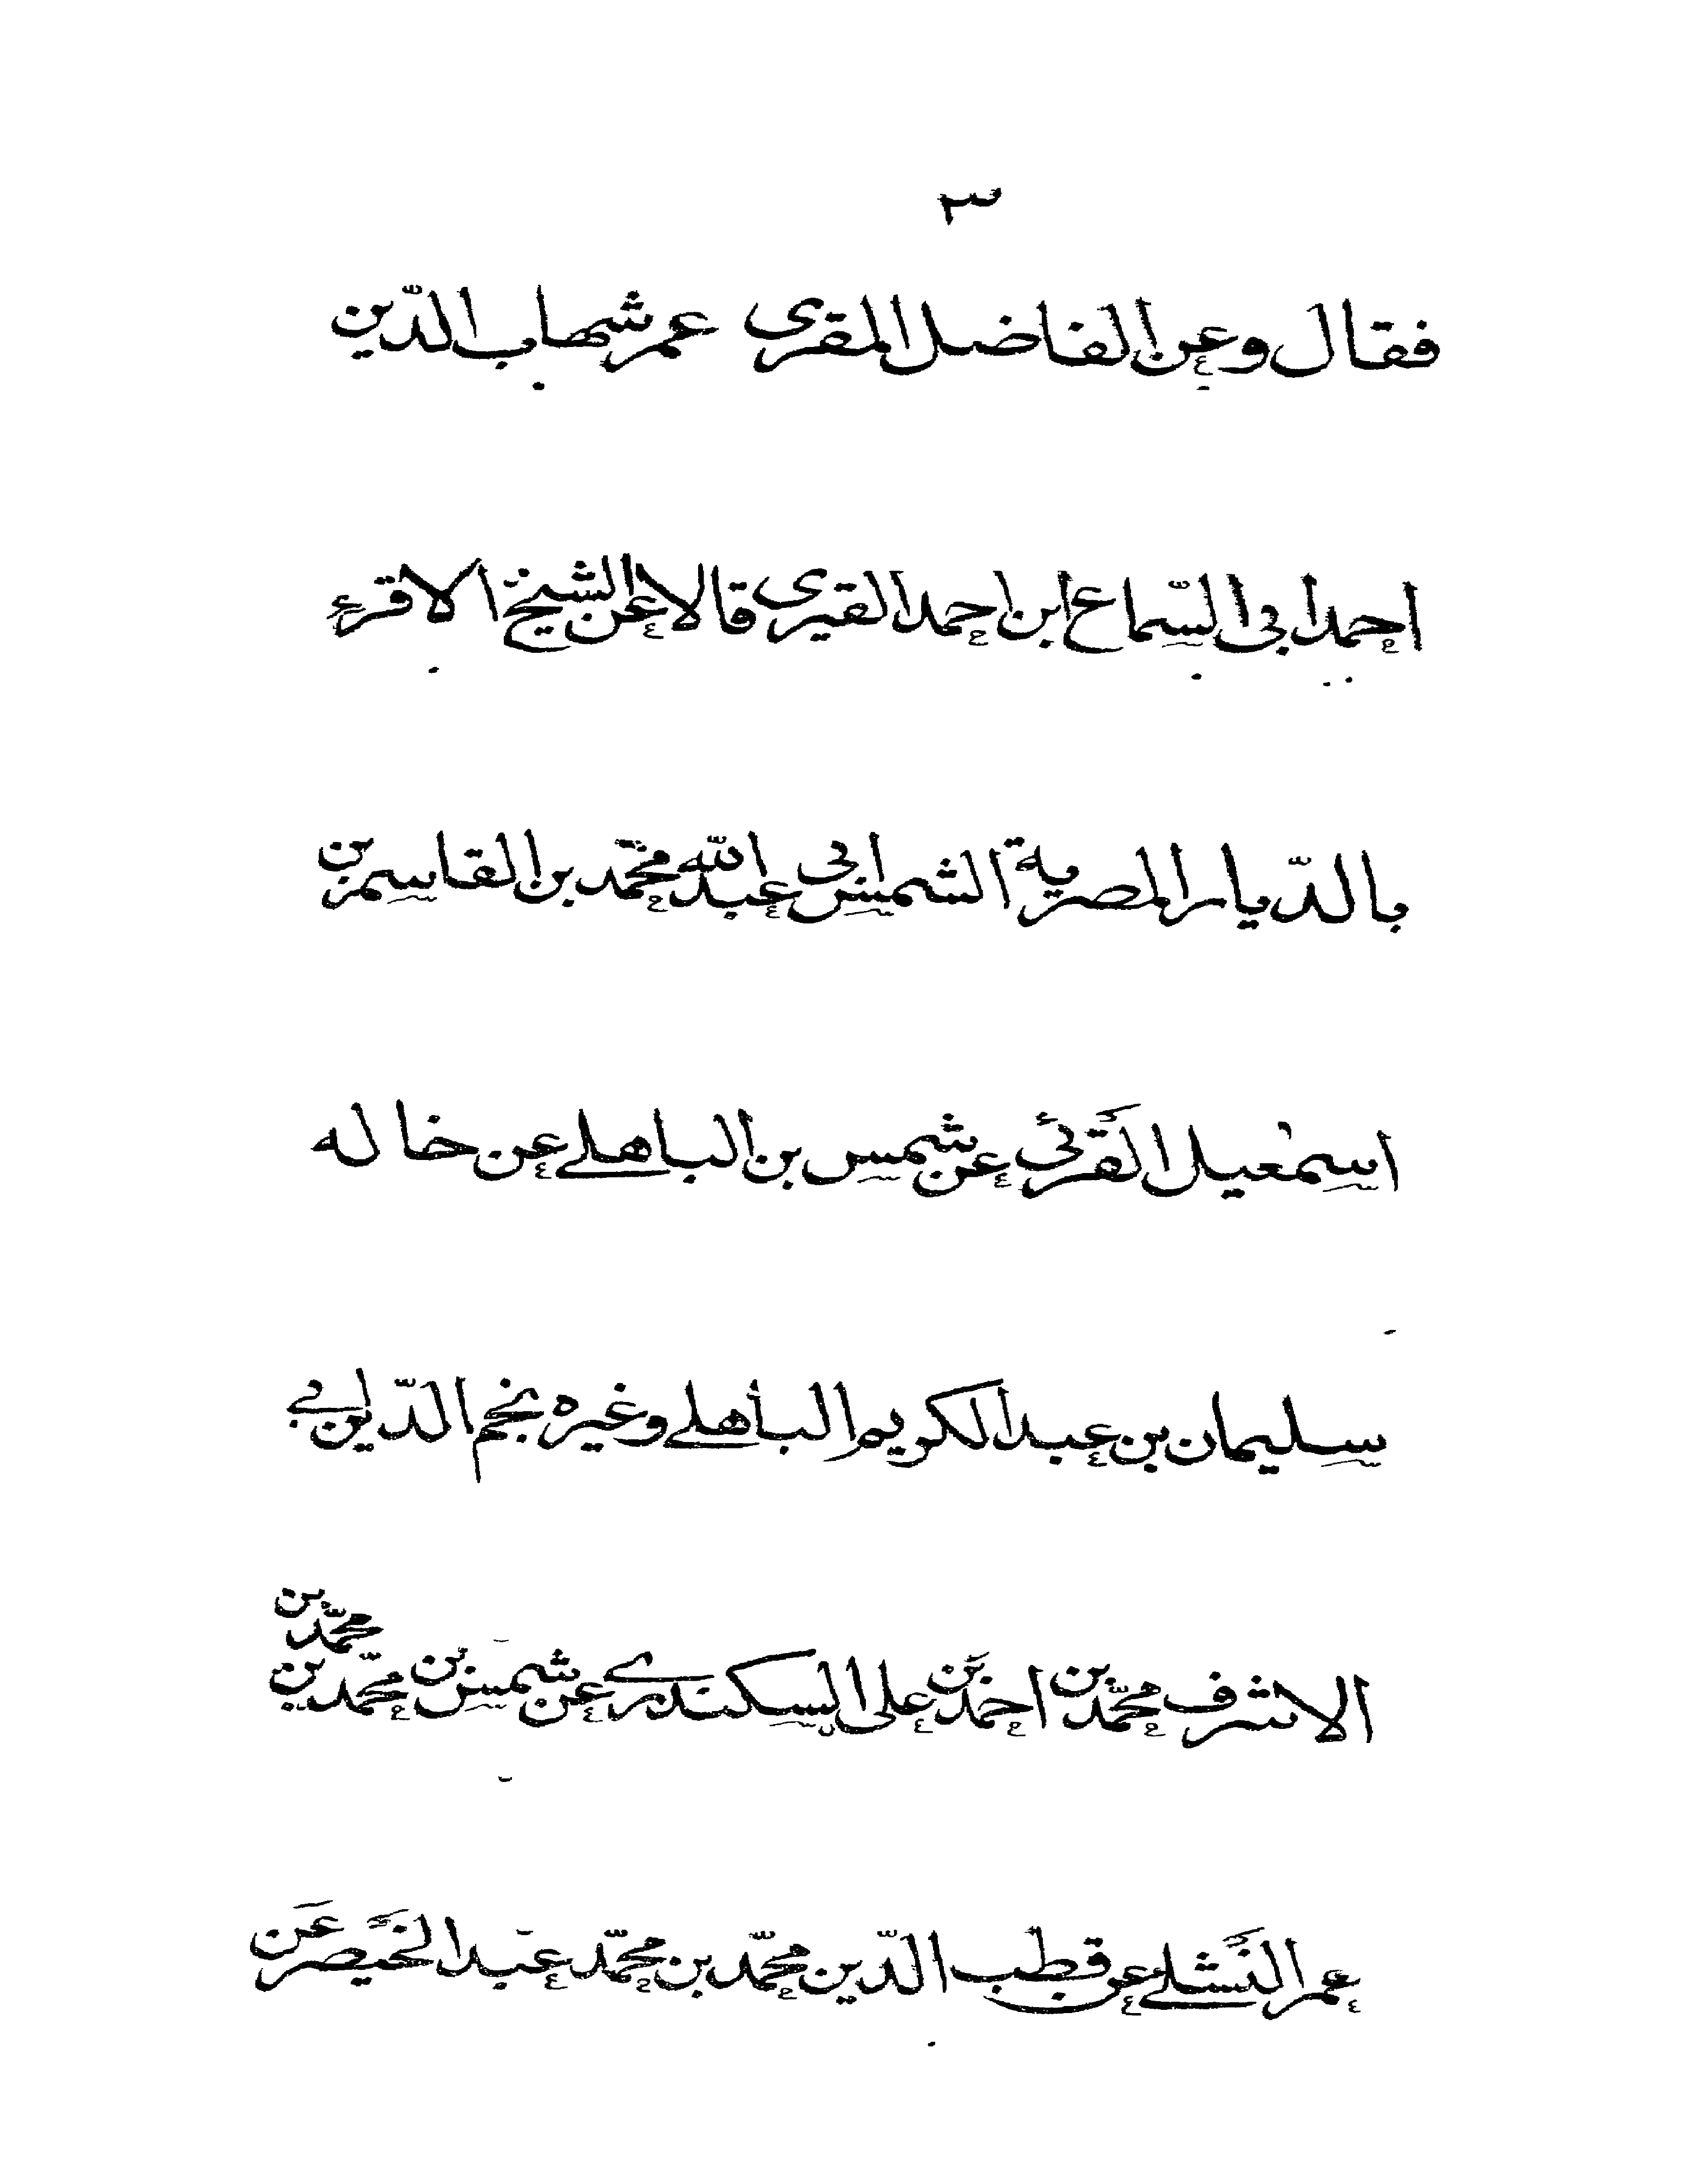 ٣
فقال وعن الفاضل المقرى عمر شهاب الدّين
احمد ابى السّماع ابن احمد القيرى قالا عن الشيخ الاقرء
بالدّيار المصرية الشمس ابى عبد الله محمّد بن القاسم بن
اسمعيل القرئي عن شمس بن الباهلے عن خاله
سليمان بن عبد الكريم البأهلے وغيره نجم الدّين بے
الاشرف محمّد بن احمد بن على السكندرے عن شمس بن محمّد بن محمّد بن
عمر النشلے عن قطب الدّين محمّد بن محمّد عبد الخيصر عن